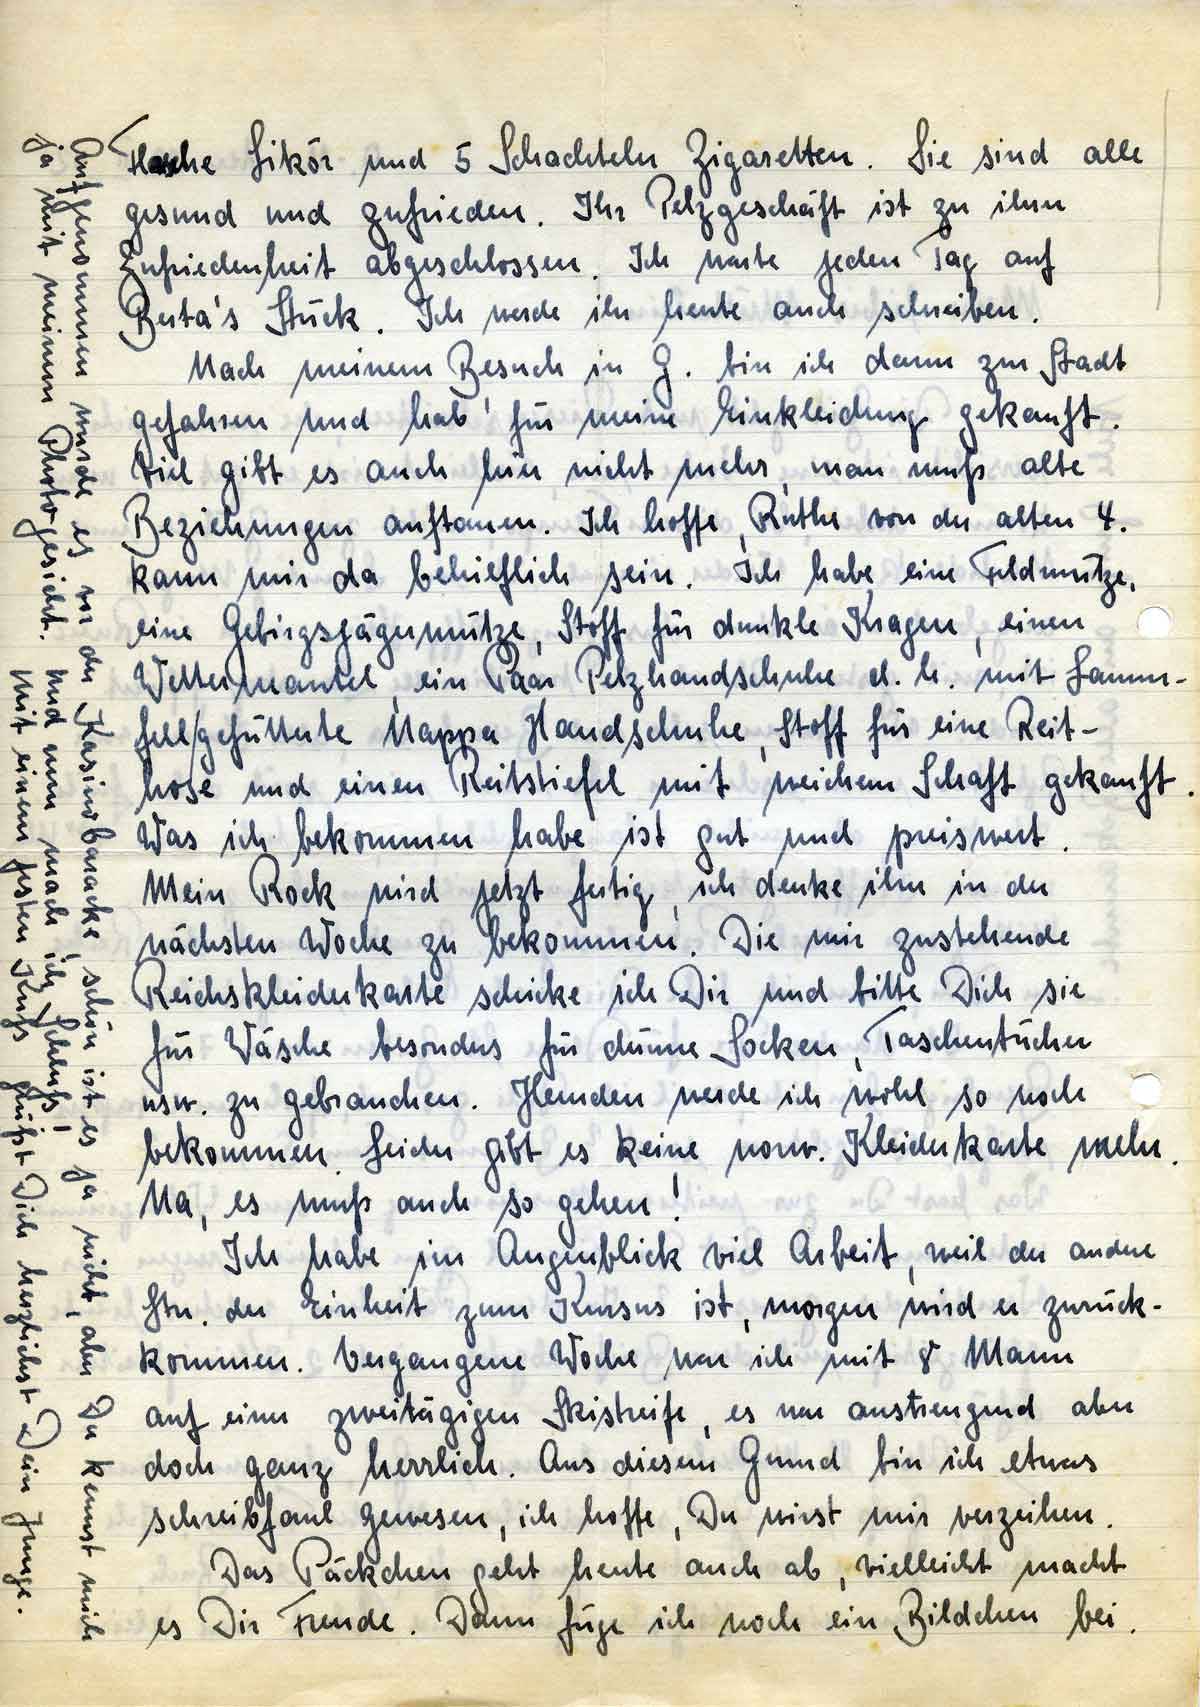 Flasche Likör und 5 Schachteln Zigaretten. Sie sind alle
gesund und zufrieden. Ihr Pelzgeschäft ist zu ihrer
Zufriedenheit abgeschlossen. Ich warte jeden Tag auf
Berta's Stück. Ich werde ihr heute auch schreiben.
Nach meinem Besuch in G. bin ich dann zur Stadt
gefahren und hab' für meine Einkleidung gekauft.
Viel gibt es auch hier nicht mehr, man muß alte
Beziehungen auftauen. Ich hoffe, Ruthe von der alten 4.
kann mir da behilflich sein. Ich habe eine Feldmütze,
eine Gebirgsjägermütze, Stoff für dunkle Kragen, einen
Wettermantel, ein Paar Pelzhandschuhe d. h. mit Lamm-
fell/gefütterte Nappa Handschuhe, Stoff für eine Reit-
hose und einen Reitstiefel mit weichem Schaft gekauft.
Was ich bekommen habe ist gut und preiswert.
Mein Rock wird jetzt fertig, ich denke ihn in der
nächsten Woche zu bekommen. Die mir zustehende
Reichskleiderkarte schicke ich Dir und bitte Dich sie
für Wäsche besonders für dünne Socken, Taschentücher
usw. zu gebrauchen. Hemden werde ich wohl so noch
bekommen. Leider gibt es keine norw. Kleiderkarte mehr.
Na, es muß auch so gehen!
Ich habe im Augenblick viel Arbeit, weil der andere
Stu. der Einheit zum Kursus ist, morgen wird er zurück-
kommen. Vergangene Woche war ich mit 8 Mann
auf einer zweitägigen Skistreife, es war anstrengend aber
doch ganz herrlich. Aus diesem Grund bin ich etwas
schreibfaul gewesen, ich hoffe, Du wirst mir verzeihen.
Das Päckchen geht heute auch ab, vielleicht macht
es Dir Freude. Dann füge ich noch ein Bildchen bei.
Aufgenommen wurde es vor der Kasinobaracke, schön ist es ja nicht, aber Du kennst mich
ja mit meinem Photogesicht. Und nun mach ich Schluß!
Mit einem festen Kuß grüßt Dich herzlichst Dein Junge.